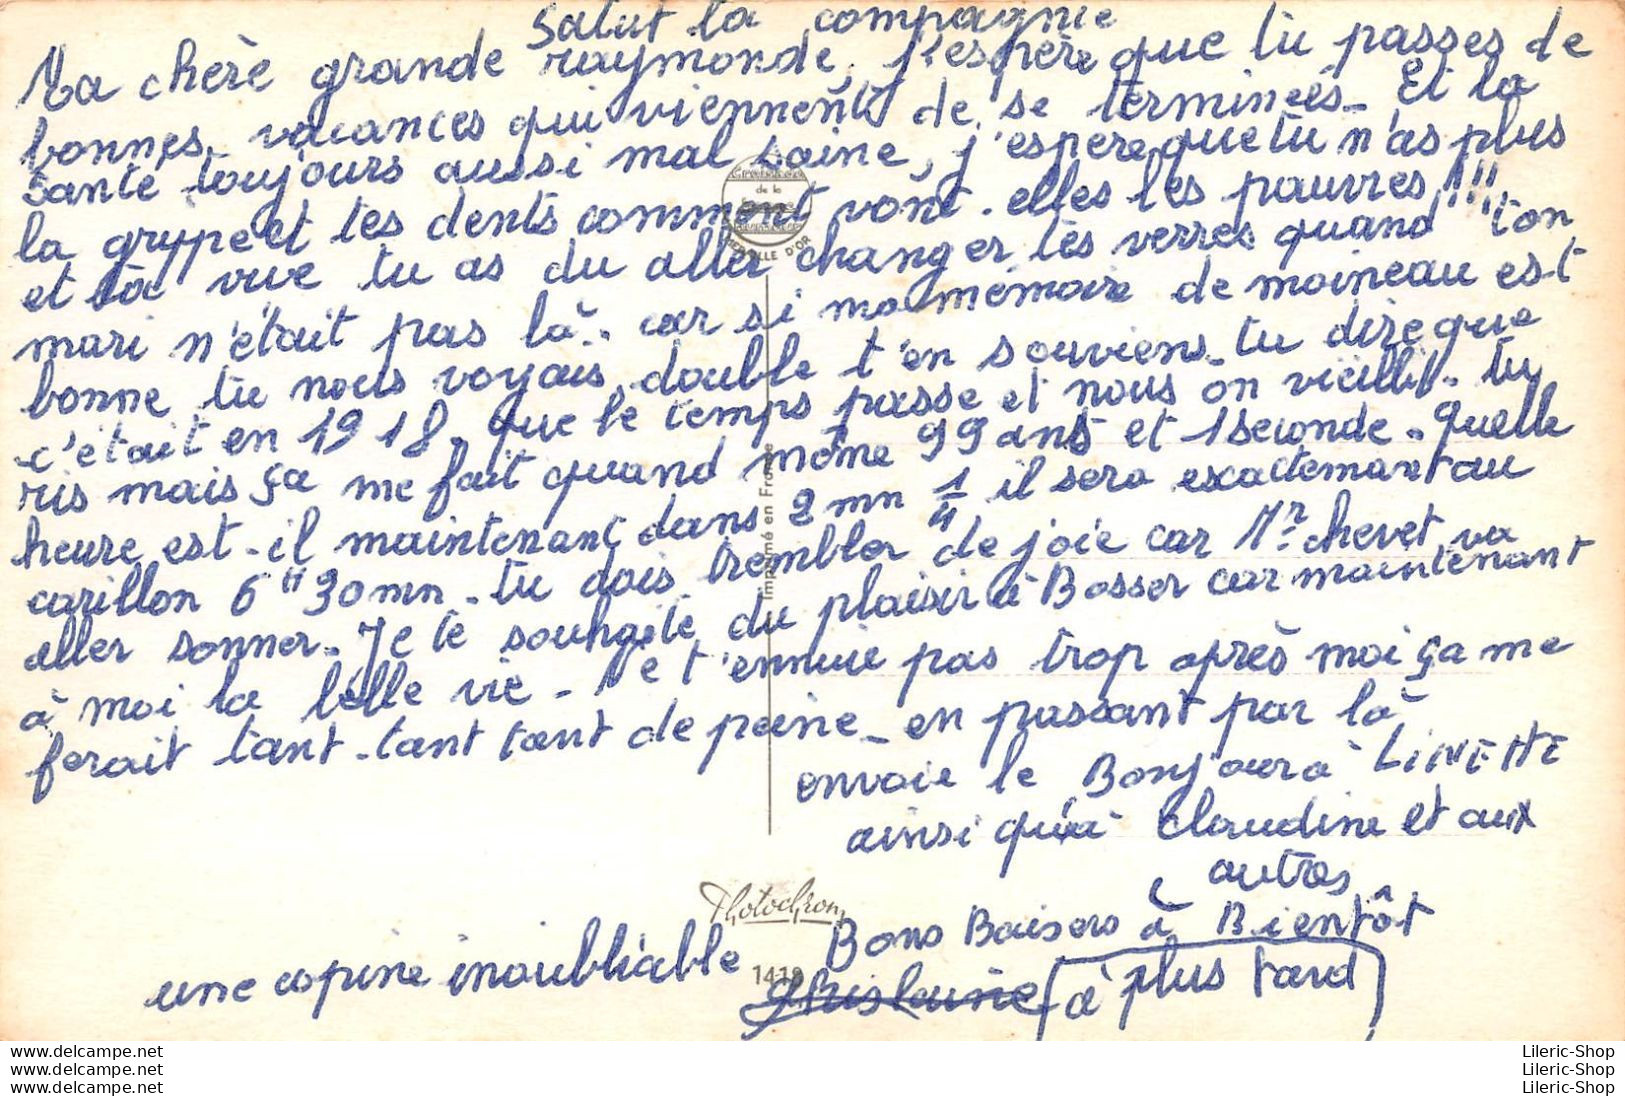 Salut la compagnie
Ma chère grande raymonde, j'espère que tu passes de
bonnes vacances qui viennent de se terminées. Et la
santé toujours aussi mal saine, j'espere que tu n'as plus
la grype et tes dents comment vont. elles les pauvres!!!
et ta vue tu as du aller changer tes verres quand ton
mari n'était pas là. car si ma mémoire de moineau est
bonne tu nous voyais double t'en souviens. tu dire que
c'était en 1918. que le temps passe et nous on vieilli. tu
ris mais ça me fait quand même 99 ans et 1 seconde. quelle
heure est-il maintenant dans 2 mn 1/4 il sera exactemant au
carillon 6 H 30 mn. tu dois trembler de joie car Mr chevet va
aller sonner. Je te souhaite du plaisir à Bosser car maintenant
à moi la belle vie. Ne t'ennuie pas trop après moi ça me
ferait tant. tant tant de peine. en passant par là
envoie le Bonjour à LINETTE
ainsi qu'à Claudine et aux
autres
Bons Baisers à Bientôt
(à plus tard)
une copine inoubliable
Ghislaine
de la
MEDAILLE D'OR
Imprimé en France
Photochrom
1418
Lileric-shop@delcampe.net
Lileric-shop@delcampe.net
Lileric-shop@delcampe.net
Lileric-Shop
Lileric-Shop
Lileric-Shop